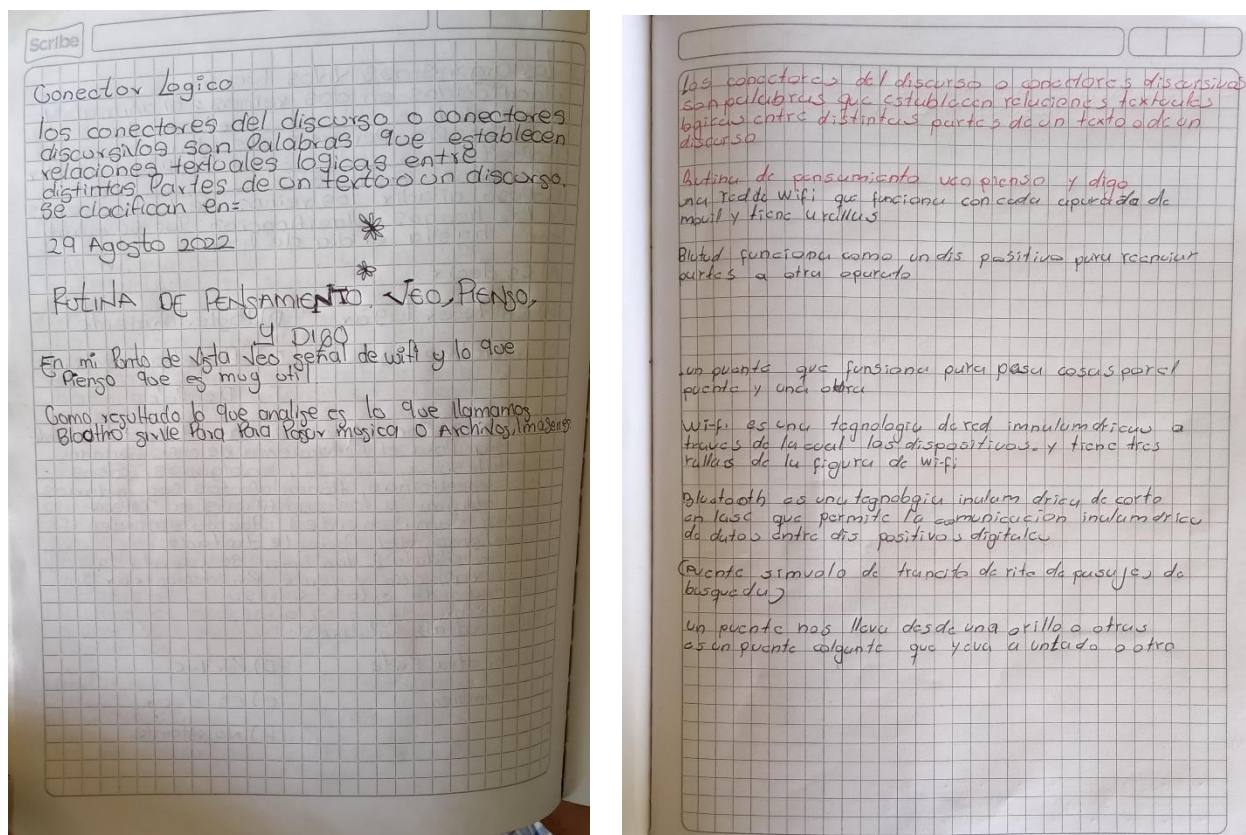 Scribe
Conector Logico
los conectores del discurso o conectores
discursivos son Palabras que establecen
relaciones textuales logicas entre
distintas Partes de un texto o un discurso.
se clacifican en=
29 Agosto 2022
RUTINA DE PENSAMIENTO, VEO, PIENSO,
Y DIGO
En mi Punto de Vista Veo señal de wifi y lo que
Pienso que es muy util
Como resultado lo que analise es lo que llamamos
BloothO sirve Para Para Pasar musica o Archivos, Imagenes
los conectores del discurso o conectores discursivos
son palabras que establecen relaciones textuales
logicas entre distintas partes de un texto o de un
discurso
Rutina de pensamiento veo pienso y digo
una red de wifi que funciona con cada aparada de
movil y tiene urallas
Blutud funciona como un dis positivo para reenviar
partes a otra aparato
un puente que funsiona para pasa cosas por el
puente y una obra
wi-fi es una tegnologia de red innalamdricas a
traves de la cual los dispositivos. y tiene tres
rallas de la figura de wi-fi
Blustooth es una tegnologia inalam drica de corto
an lase que permite la comunicacion inalamdrica
de datos entre dis positivos digitales
(puente simvolo de trancito de rito de pasaje, de
busqueda)
un puente nos lleva desde una orilla a otras
es un puente colgante que yeva a untado o otro